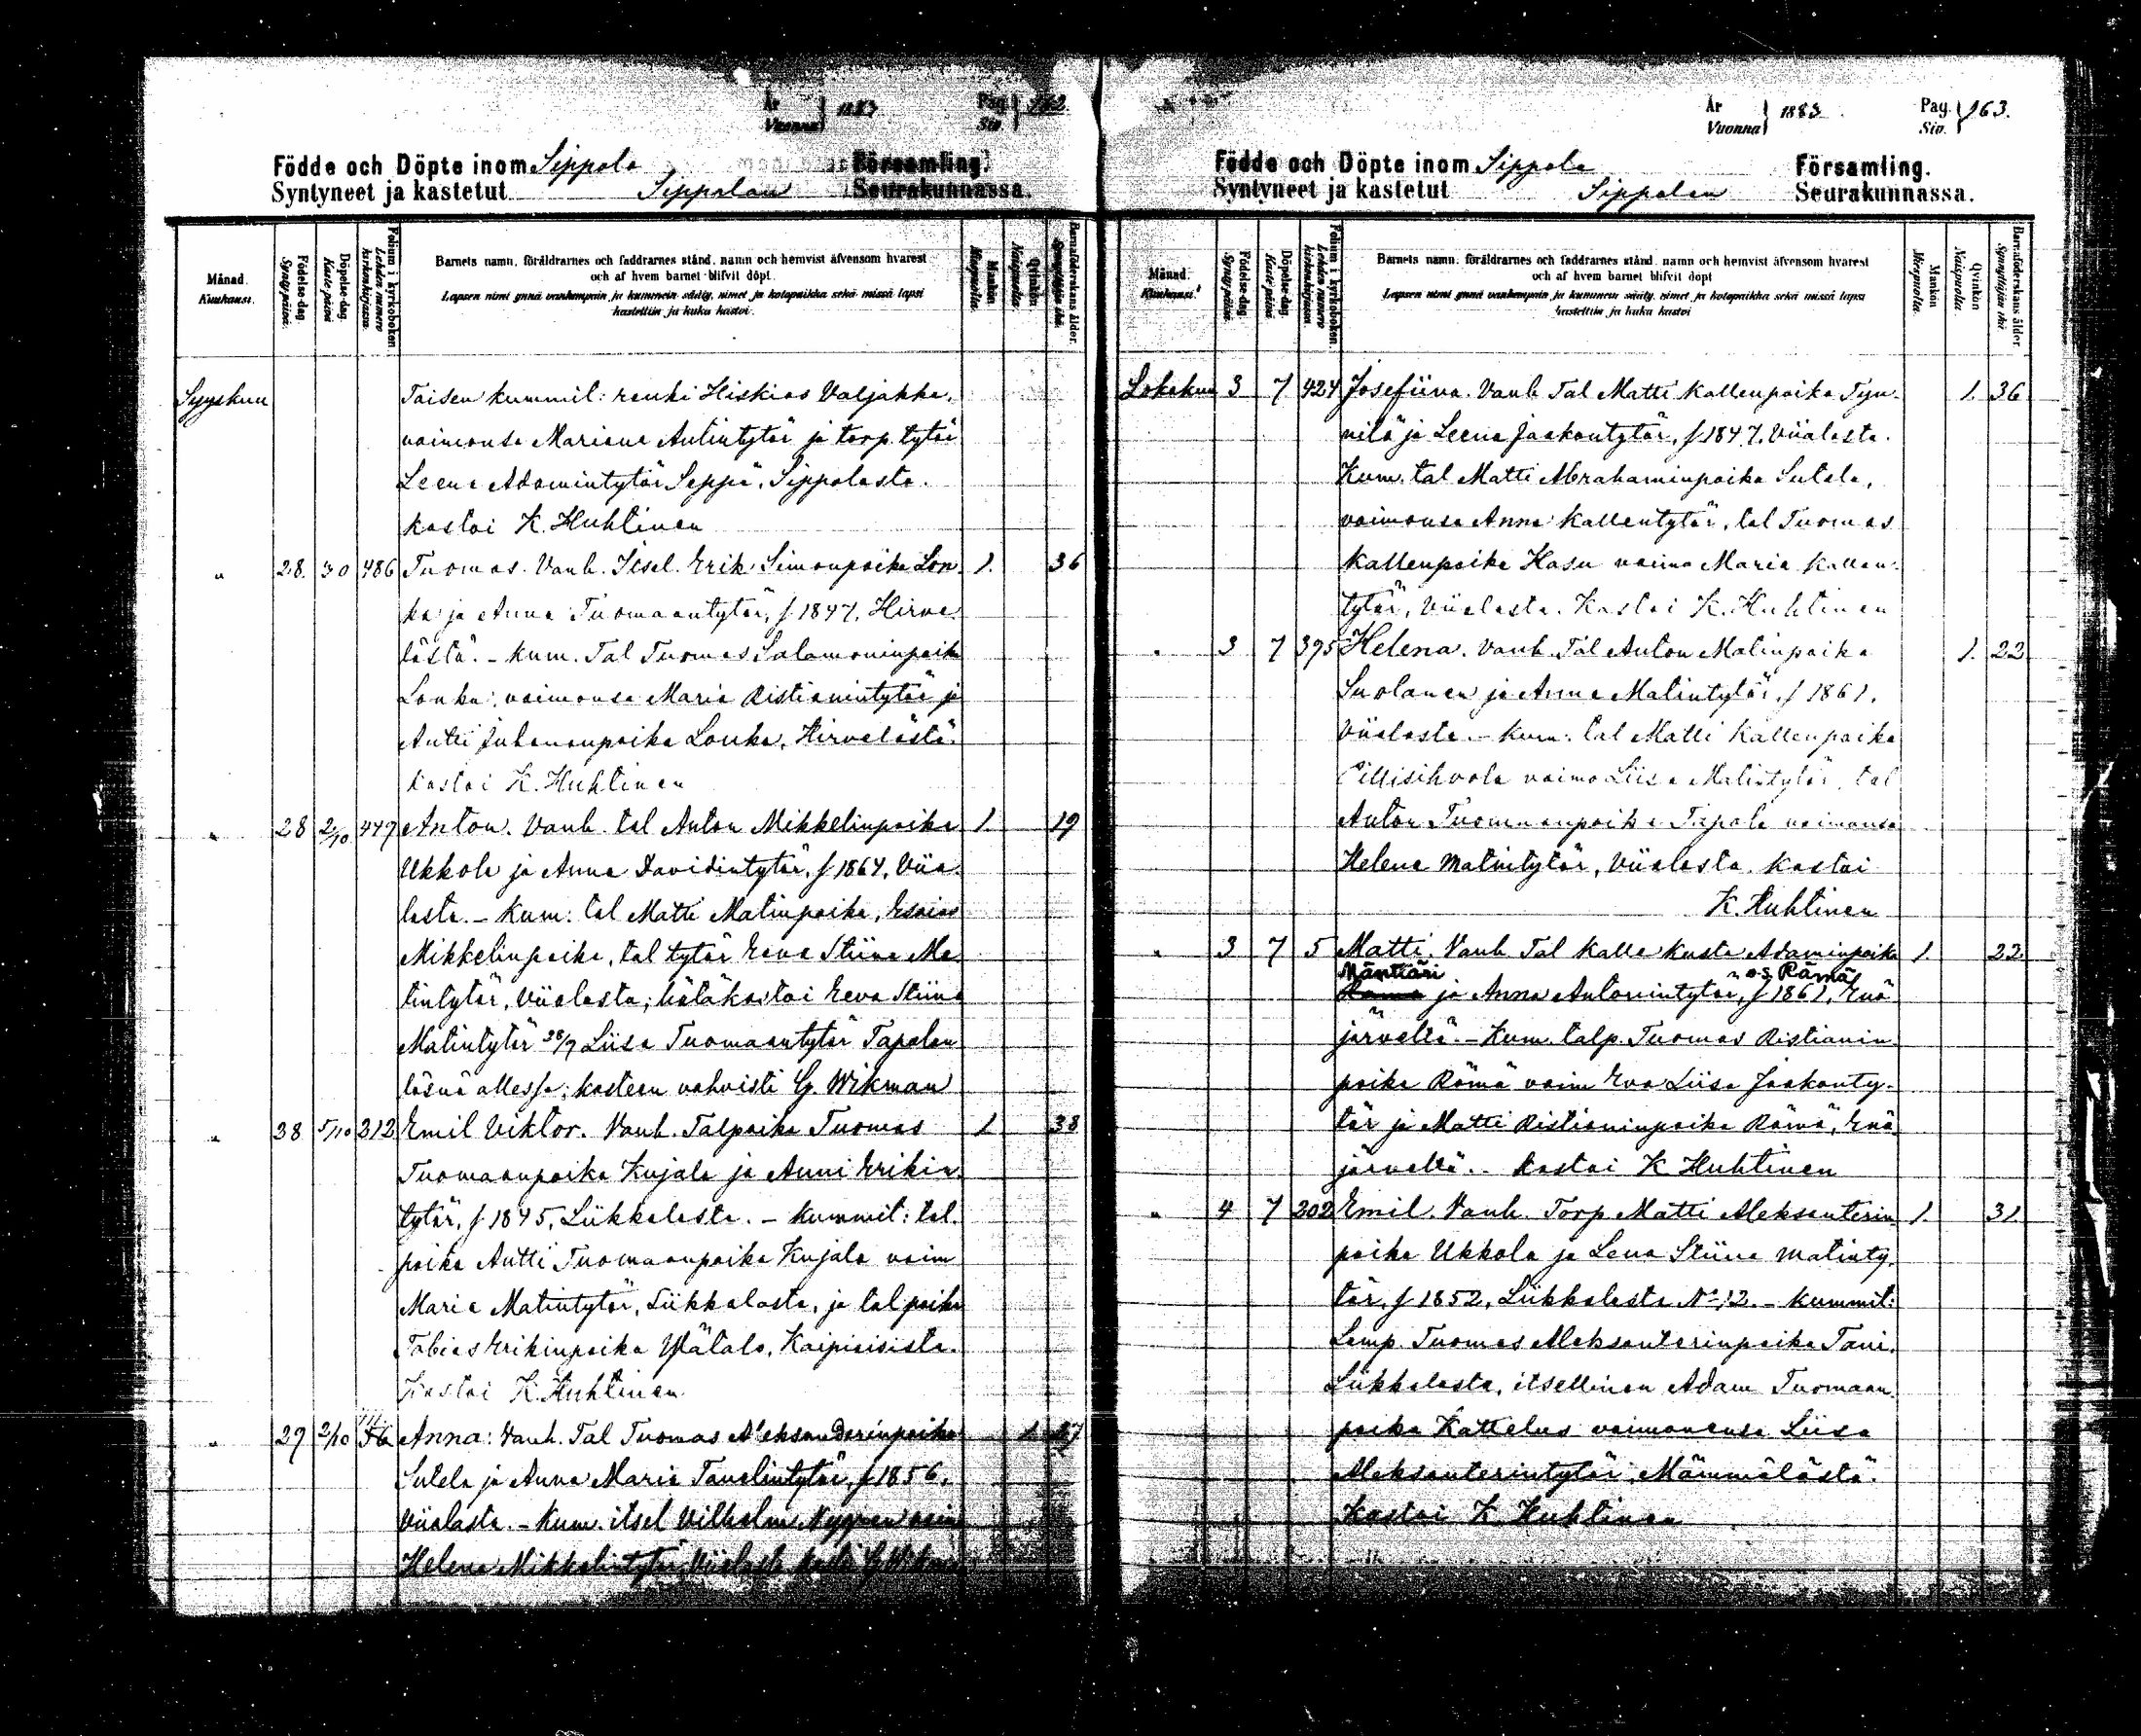 År Vuonna 1883 Pag. Siv. 162.
Födde och Döpte inom Sippola Församling.
Syntyneet ja kastetut Sippolan Seurakunnassa.
Månad. Kuukausi.
Födelse-dag. Synty-päivä.
Döpelse-dag. Kaste-päivä
Folium i kyrkoboken. Lehden numero kirkonkirjassa.
Barnets namn, föräldrarnes och faddrarnes stånd, namn och hemvist äfvensom hvarest
och af hvem barnet blifvit döpt.
Lapsen nimi ynnä vanhempain ja kummein sääty, nimet ja kotopaikka sekä missä lapsi
kastettiin ja kuka kastoi.
Mankön. Miespuolta.
Qvinkön. Naispuolta.
Barnaföderskans ålder. Synnyttäjän ikä.
Syyskuu Toisen kummil: renki Hiskias Valjakka,
vaimonsa Mariana Antintytär ja torp. tytär
Leena Adamintytär Seppä, Sippolasta.
kastoi K. Huhtinen
" 28. 30 486 Tuomas. Vanh. Itsel. Erik Simonpoika Lon- 1. 36
ka ja Anna Tuomaantytär, f 1847, Hirve-
lästä. - Kum. Tal Tuomas Salomoninpoika
Lonka, vaimonsa Maria Ristianintytär ja
Antti Juhananpoika Lonka, Hirvelästä.
Kastoi K. Huhtinen
" 28 2/10 447 Anton. Vanh. tal Anton Mikkelinpoika 1. 19
Ukkola ja Anna Davidintytär, f 1864, Viia-
lasta. - Kum: tal Matti Matinpoika, Esaias
Mikkelinpoika, tal tytär Eeva Stiina Ma
tintytär, Viialasta; hätäkastoi Eeva Stiina
Matintytär 28/9 Liisa Tuomaantytär Tapolan
läsnä ollessa; kasteen vahvisti G. Wikman
" 28 5/10 212 Emil Viktor. Vanh. Talpoika Tuomas 1 38
Tuomaanpoika Kujala ja Anni Erikin-
tytär, f 1845, Liikkalasta. - Kummit: tal.
poika Antti Tuomaanpoika Kujala vaim
Maria Matintytär, Liikkalasta, ja tal poika
Tobias Erikinpoika Ylätalo, Kaipiaisista.
Kastoi K. Huhtinen
" 29 2/10 Anna: Vanh. Tal Tuomas Aleksanderinpoika 1 27
Sutela ja Anna Maria Tanelintytär, f 1856,
Viialasta. - Kum. itsel Vilhelm Nygren vaim
Helena Mikkelintytär, Viialasta kasti G Wikman
År Vuonna 1883. Pag. Siv. 163.
Födde och Döpte inom Sippola Församling.
Syntyneet ja kastetut Sippolan Seurakunnassa.
Månad. Kuukausi.
Födelse-dag. Synty-päivä.
Döpelse-dag. Kaste-päivä
Folium i kyrkoboken. Lehden numero kirkonkirjassa
Barnets namn, föräldrarnes och faddrarnes stånd, namn och hemvist äfvensom hvarest
och af hvem barnet blifvit döpt
Lapsen nimi ynnä vanhempain ja kummein sääty, nimet ja kotopaikka sekä missä lapsi
kastettiin ja kuka kastoi
Mankön Miespuolta.
Qvinkön Naispuolta.
Barnaföderskans ålder Synnyttäjän ikä
Lokakuu 3 7 424 Josefiina. Vanh Tal Matti Kallenpoika Tyn- 1. 36
nilä ja Leena Jaakontytär, f 1847, Viialasta.
Kum. tal Matti Abrahaminpoika Sutela,
vaimonsa Anna Kallentytär, tal Tuomas
Kallenpoika Hasu vaimo Maria Kallen-
tytär, Viialasta. Kastoi K. Huhtinen
" 3 7 395 Helena. Vanh. Tal Anton Matinpoika 1. 22
Suolanen ja Anna Matintytär, f 1861,
Viialasta. - Kum: tal Matti Kallenpoika
Pillisihvola vaimo Liisa Matintytär, tal
Anton Tuomaanpoika Tapola vaimonsa
Helena Matintytär, Viialasta. kastoi
K. Huhtinen
" 3 7 5 Matti. Vanh Tal Kalle Kusta Adaminpoika 1. 22
Mänttäri o.s. Rämä
ja Anna Antonintytär, f 1861, Enä
järveltä. - Kum. talp. Tuomas Ristianin
poika Rämä vaim Eva Liisa Jaakonty-
tär ja Matti Ristianinpoika Rämä, Enä-
järveltä. - Kastoi K Huhtinen
" 4 7 202 Emil. Vanh. Torp Matti Aleksanterin 1. 31
poika Ukkola ja Lena Stiina Matinty-
tär, f 1852, Liikkalasta No 12. - Kummit:
Lamp. Tuomas Aleksanterinpoika Tani,
Liikkalasta, itsellinen Adam Tuomaan-
poika Kattelus vaimonensa Liisa
Aleksanterintytär, Mämmälästä.
Kastoi K. Huhtinen